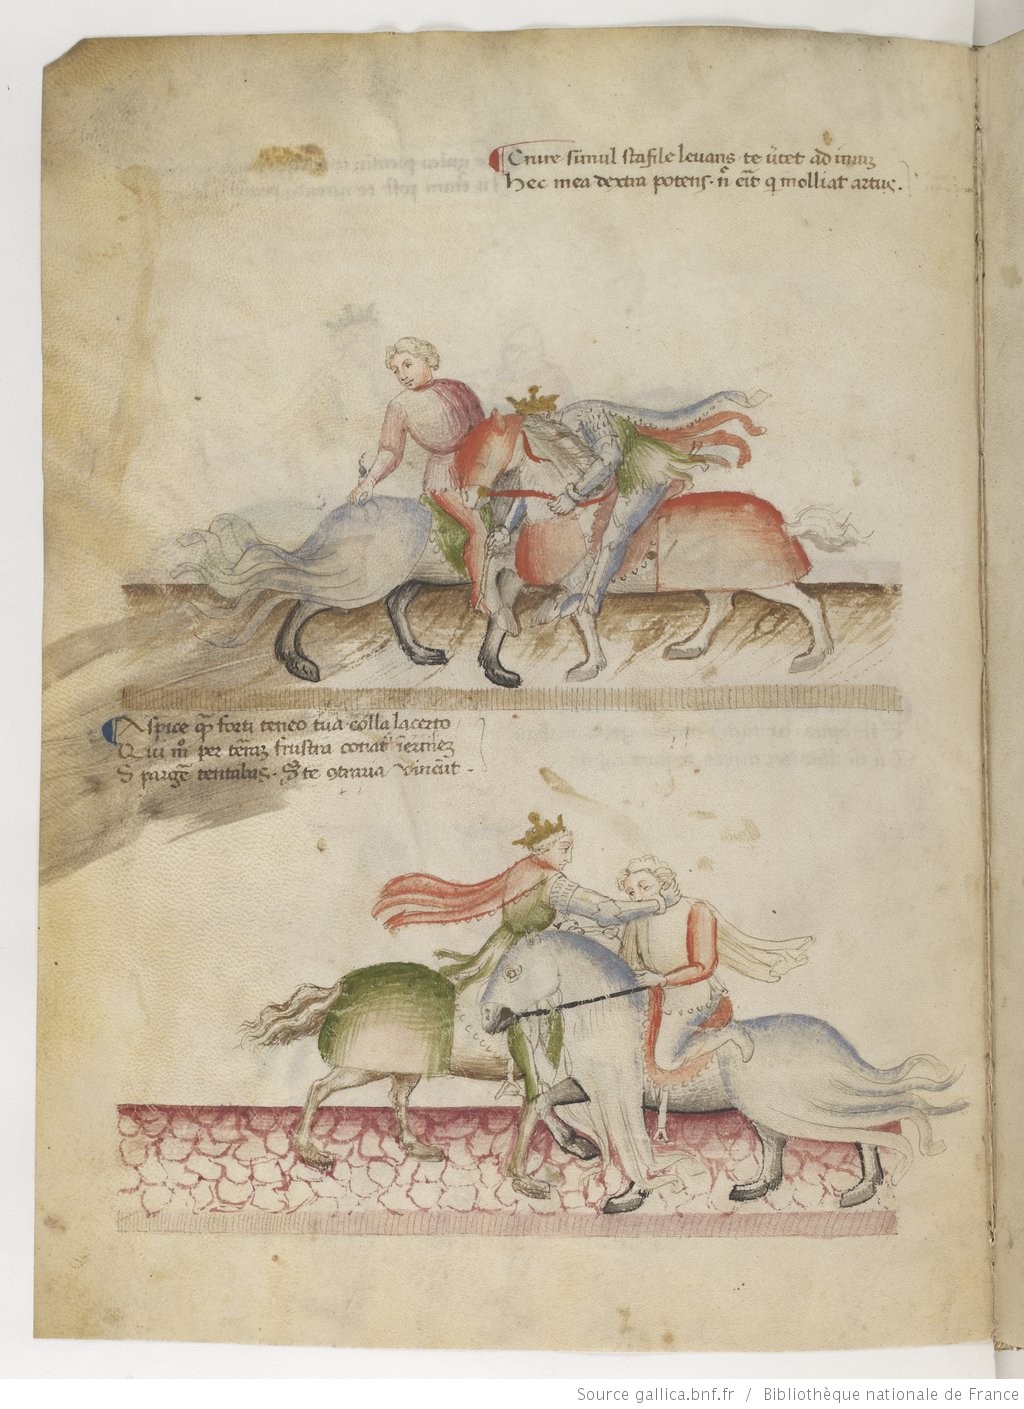 Crure simul stafile levans te v̄tet ad imuꝫ
Hec mea dextra potens. n̄ eīt q̄ molliat artus.
Aspice q̄m forti teneo tua colla lacerto
Qui m̊ per terraꝫ frustra conat̄
Spargē tentabas. S te ꝯtraria vincūt.
Source gallica.bnf.fr / Bibliothèque nationale de France